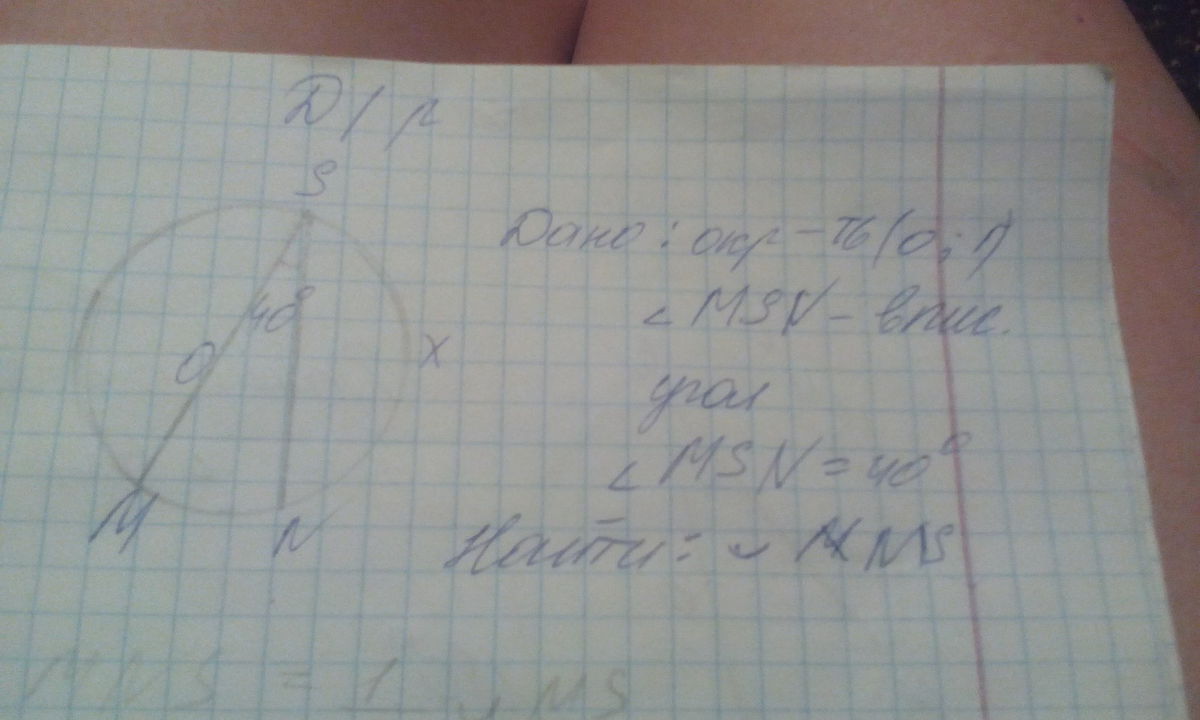 Д/р
S
40°
O
X
M
N
Дано: окр-ть (О; r)
∠MSN - впис.
угол
∠MSN = 40°
Найти: ◡ NS
MNS = 1 ◡ NS